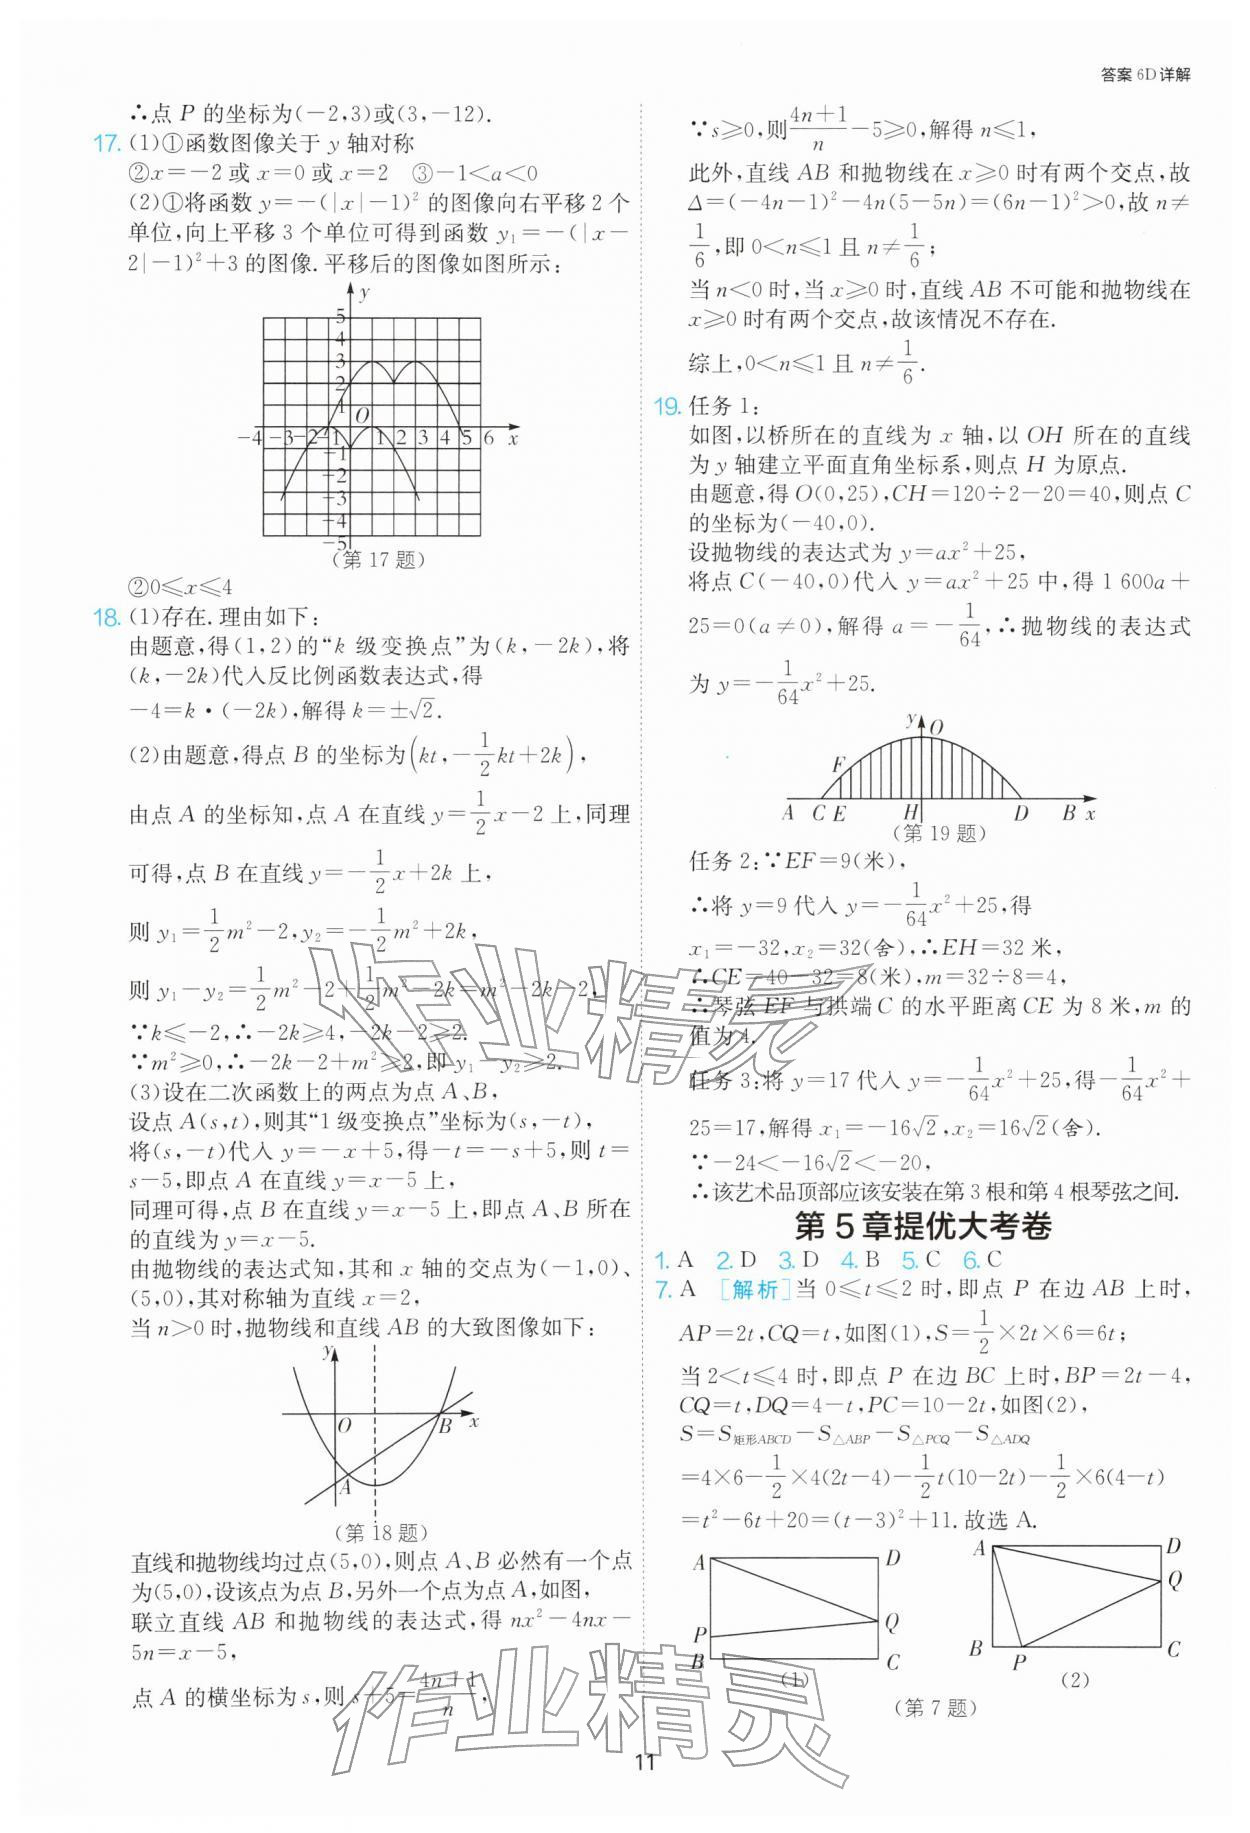 答案 6D详解
∴点 P 的坐标为(-2,3)或(3,-12).
17. (1)①函数图像关于 y 轴对称
②x=-2 或 x=0 或 x=2 ③-1<a<0
(2)①将函数 y=-(|x|-1)² 的图像向右平移 2 个
单位,向上平移 3 个单位可得到函数 y₁=-(|x-
2|-1)²+3 的图像.平移后的图像如图所示:
y
5
4
3
2
1
O
-4 -3 -2 -1 1 2 3 4 5 6 x
-1
-2
-3
-4
-5
(第 17 题)
②0≤x≤4
18. (1)存在.理由如下:
由题意,得(1,2)的“k 级变换点”为(k,-2k),将
(k,-2k)代入反比例函数表达式,得
-4=k·(-2k),解得 k=±√2.
(2)由题意,得点 B 的坐标为(kt,-1/2kt+2k),
由点 A 的坐标知,点 A 在直线 y=1/2x-2 上,同理
可得,点 B 在直线 y=-1/2x+2k 上,
则 y₁=1/2m²-2,y₂=-1/2m²+2k,
则 y₁-y₂=1/2m²-2+1/2m²-2k=m²-2k-2,
∵k≤-2,∴-2k≥4,-2k-2≥2.
∵m²≥0,∴-2k-2+m²≥2,即 y₁-y₂≥2.
(3)设在二次函数上的两点为点 A、B,
设点 A(s,t),则其“1 级变换点”坐标为(s,-t),
将(s,-t)代入 y=-x+5,得-t=-s+5,则 t=
s-5,即点 A 在直线 y=x-5 上,
同理可得,点 B 在直线 y=x-5 上,即点 A、B 所在
的直线为 y=x-5.
由抛物线的表达式知,其和 x 轴的交点为(-1,0)、
(5,0),其对称轴为直线 x=2,
当 n>0 时,抛物线和直线 AB 的大致图像如下:
y
O B x
A
(第 18 题)
直线和抛物线均过点(5,0),则点 A、B 必然有一个点
为(5,0),设该点为点 B,另外一个点为点 A,如图,
联立直线 AB 和抛物线的表达式,得 nx²-4nx-
5n=x-5,
点 A 的横坐标为 s,则 s+5=(4n+1)/n,
∵s≥0,则(4n+1)/n-5≥0,解得 n≤1,
此外,直线 AB 和抛物线在 x≥0 时有两个交点,故
Δ=(-4n-1)²-4n(5-5n)=(6n-1)²>0,故 n≠
1/6,即 0<n≤1 且 n≠1/6;
当 n<0 时,当 x≥0 时,直线 AB 不可能和抛物线在
x≥0 时有两个交点,故该情况不存在.
综上,0<n≤1 且 n≠1/6.
19. 任务 1:
如图,以桥所在的直线为 x 轴,以 OH 所在的直线
为 y 轴建立平面直角坐标系,则点 H 为原点.
由题意,得 O(0,25),CH=120÷2-20=40,则点 C
的坐标为(-40,0).
设抛物线的表达式为 y=ax²+25,
将点 C(-40,0)代入 y=ax²+25 中,得 1 600a+
25=0(a≠0),解得 a=-1/64,∴抛物线的表达式
为 y=-1/64x²+25.
y O
F
A C E H D B x
(第 19 题)
任务 2:∵EF=9(米),
∴将 y=9 代入 y=-1/64x²+25,得
x₁=-32,x₂=32(舍),∴EH=32 米,
∴CE=40-32=8(米),m=32÷8=4,
∴琴弦 EF 与拱端 C 的水平距离 CE 为 8 米,m 的
值为 4.
任务 3:将 y=17 代入 y=-1/64x²+25,得-1/64x²+
25=17,解得 x₁=-16√2,x₂=16√2(舍).
∵-24<-16√2<-20,
∴该艺术品顶部应该安装在第 3 根和第 4 根琴弦之间.
第 5 章提优大考卷
1. A 2. D 3. D 4. B 5. C 6. C
7. A [解析]当 0≤t≤2 时,即点 P 在边 AB 上时,
AP=2t,CQ=t,如图(1),S=1/2×2t×6=6t;
当 2<t≤4 时,即点 P 在边 BC 上时,BP=2t-4,
CQ=t,DQ=4-t,PC=10-2t,如图(2),
S=S矩形ABCD-S△ABP-S△PCQ-S△ADQ
=4×6-1/2×4(2t-4)-1/2t(10-2t)-1/2×6(4-t)
=t²-6t+20=(t-3)²+11.故选 A.
A D
Q
P
B C
(1)
A D
Q
B P C
(2)
(第 7 题)
作业精灵
作业精灵
11